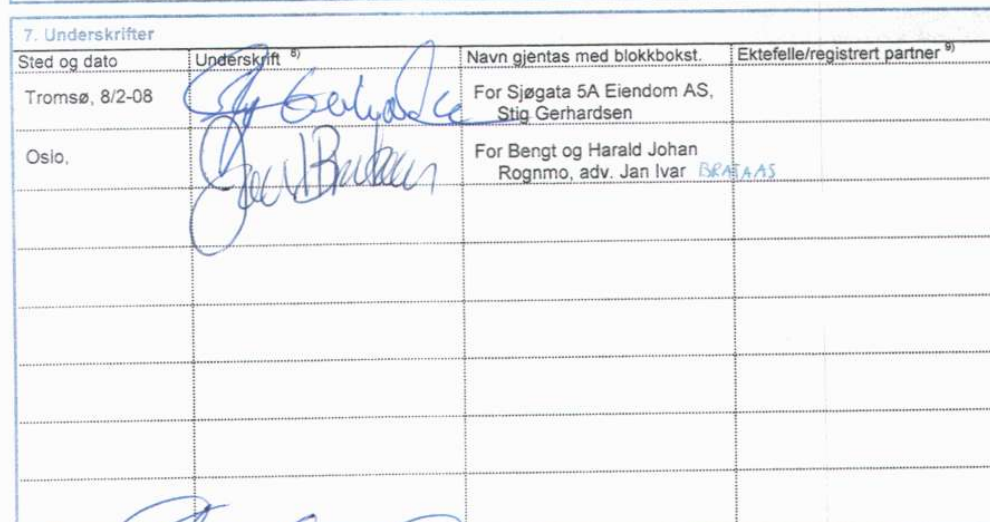 7. Underskrifter
Sted og dato Underskrift 8) Navn gjentas med blokkbokst. Ektefelle/registrert partner 9)
Tromsø, 8/2-08 For Sjøgata 5A Eiendom AS,
Stig Gerhardsen
Oslo, For Bengt og Harald Johan
Rognmo, adv. Jan Ivar BRATAAS